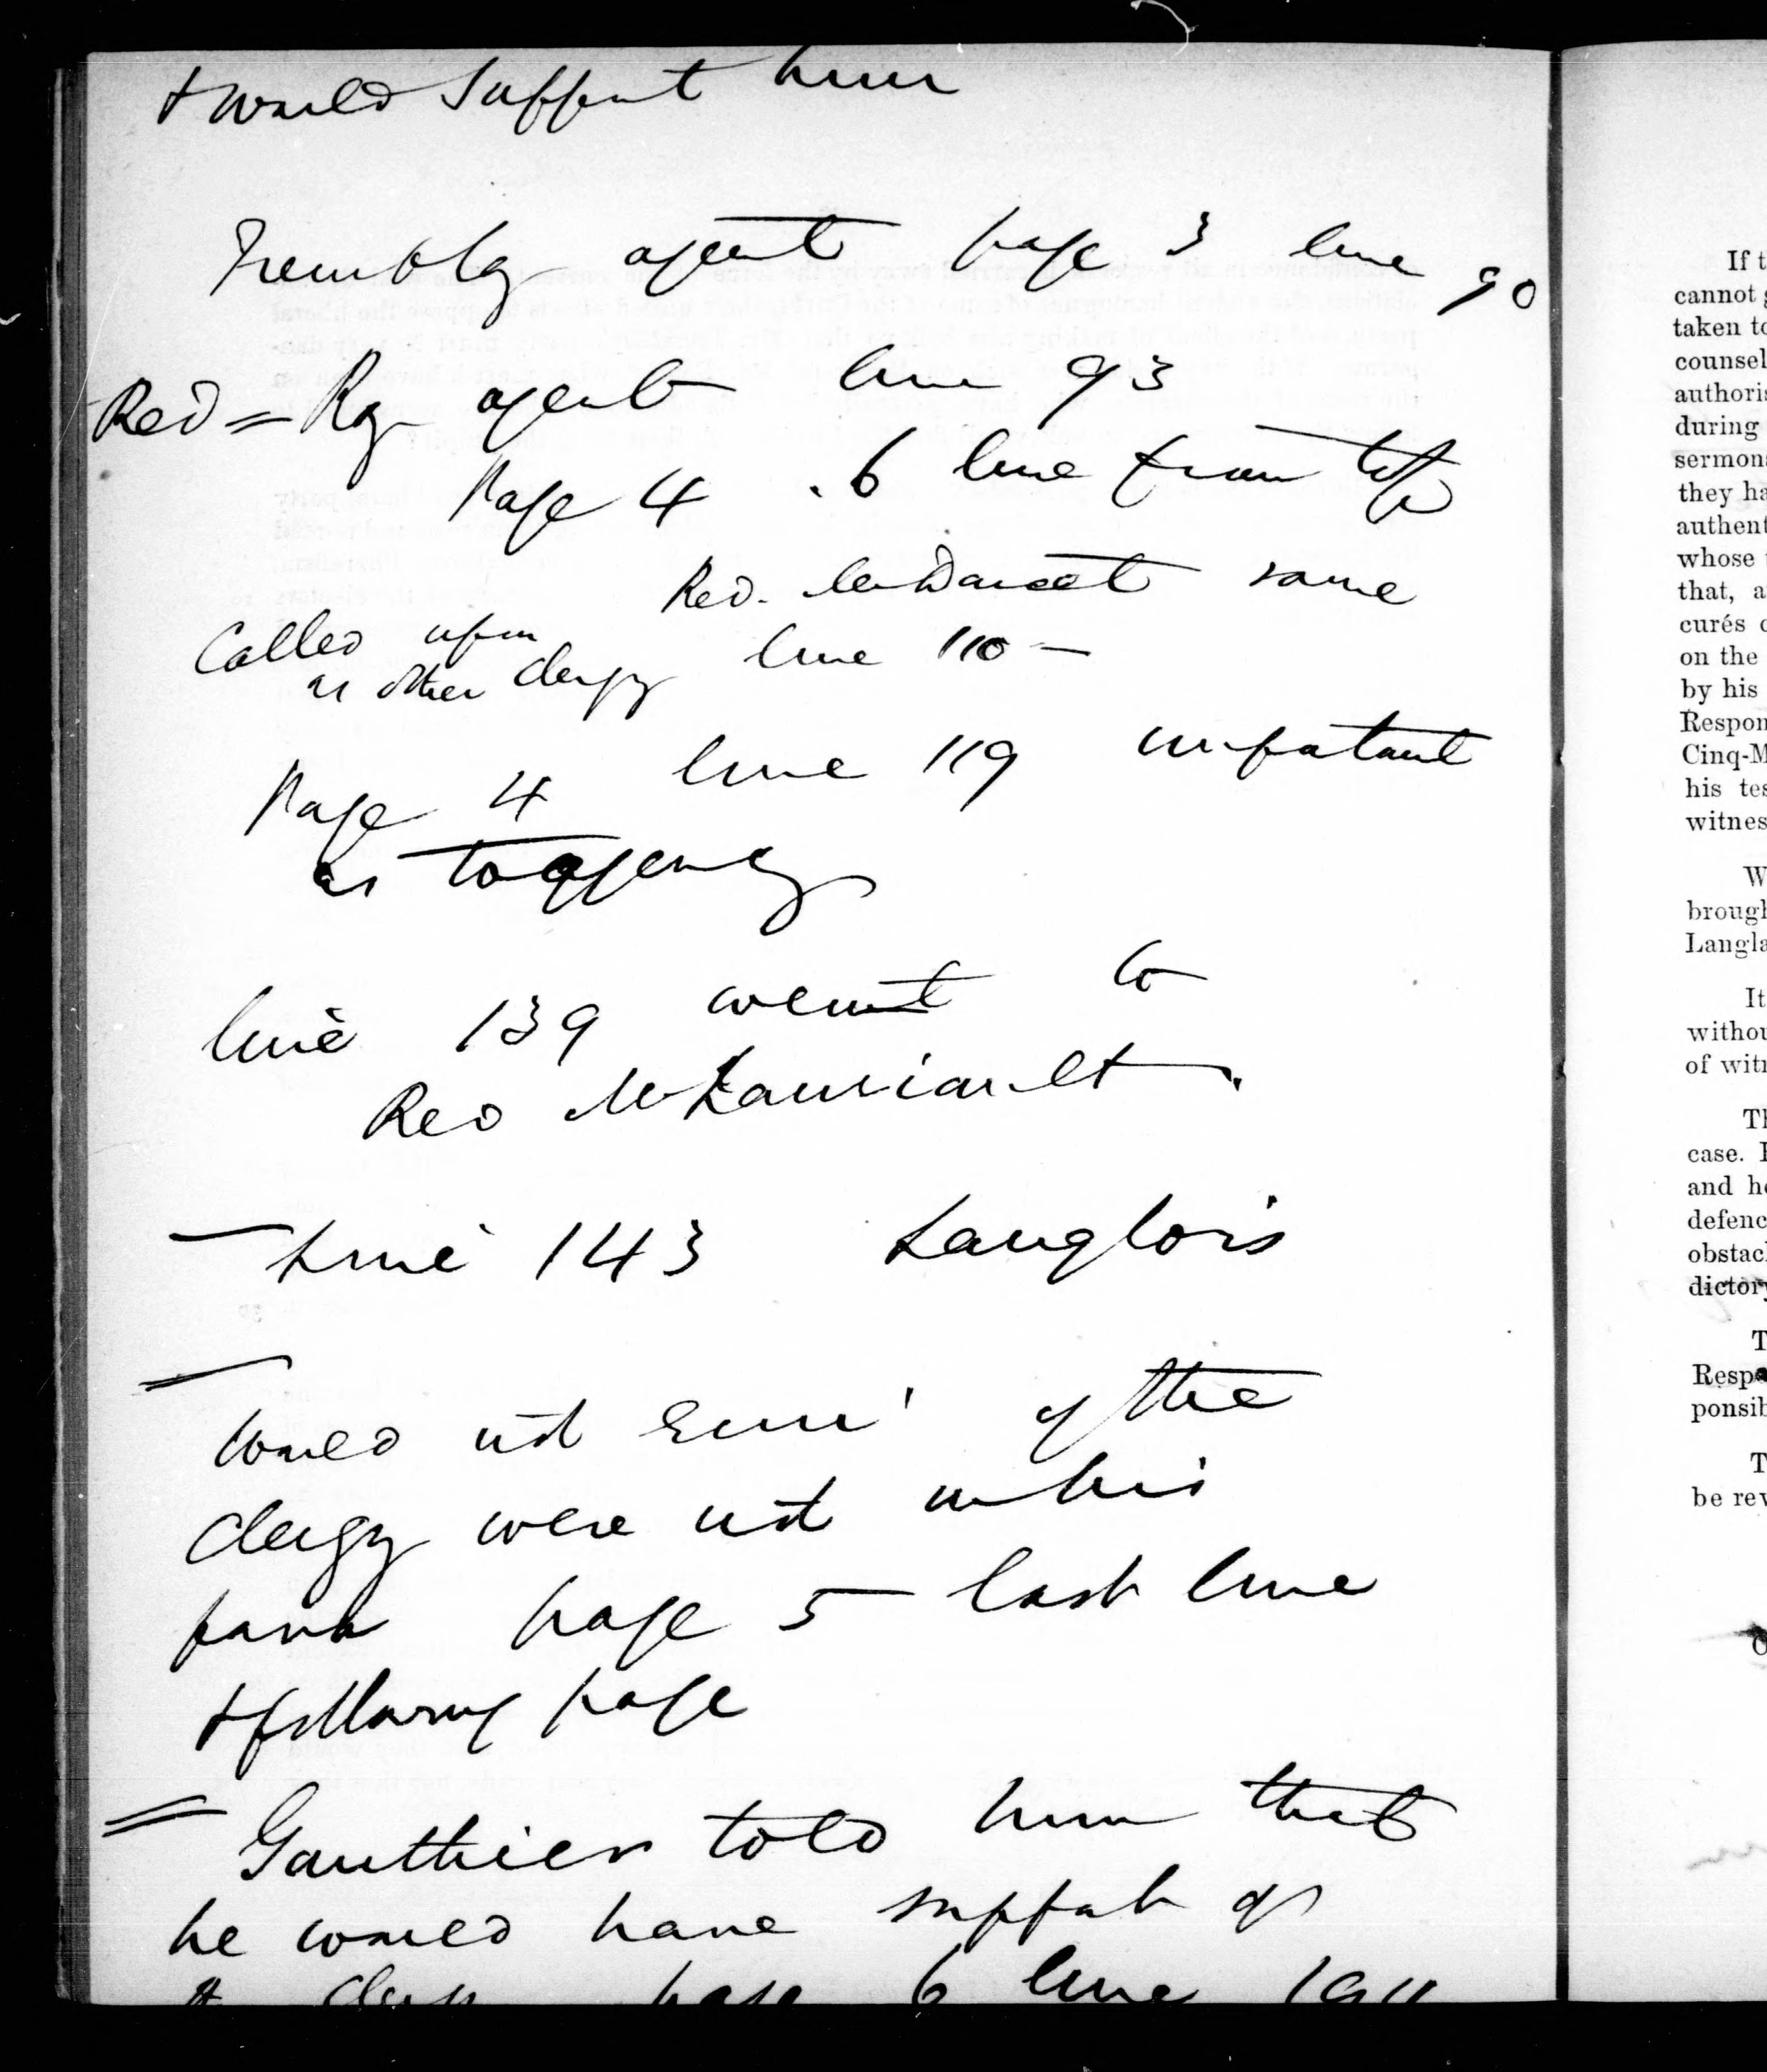 & would support him
Tremblay agent page 3 line 90
Red = Rg agent line 93
Page 4 . 6 line from top
Rev. Mr Doucet same
Called upon line 110 —
as other clergy
Page 4 line 119 important
as to agency
line 139 went to
Rev Mr Lauriault.
— Line 143 Langlois
would not run if the
clergy were not in his
favor page 5 last line
& following page
= Gauthier told him that
he would have support of
clergy page 6 line
If t
cannot g
taken to
counsel
authoris
during
sermons
they ha
authent
whose
that, a
curés
on the
by his
Respon
Cinq-M
his tes
witnes
W
brough
Langla
It
withou
of wit
Th
case.
and he
defenc
obstac
dictory
T
Resp
ponsib
T
be rev